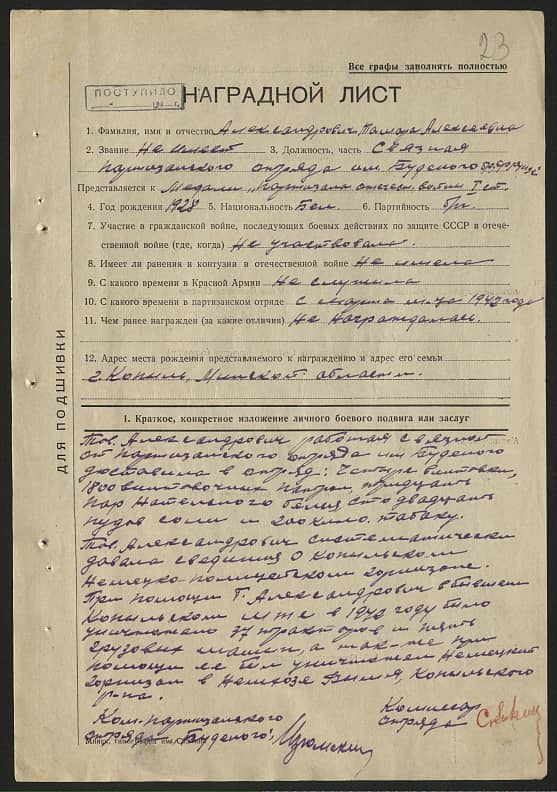 23
Все графы заполнять полностью
ПОСТУПИЛО
НАГРАДНОЙ ЛИСТ
1. Фамилия, имя и отчество Александрович Тамара Алексеевна
2. Звание Не имеет 3. Должность, часть Связная
партизанского отряда им. Буденого
Представляется к Медали „Партизана отечеств. войны I ст.
4. Год рождения 1928 5. Национальность Бел. 6. Партийность б/п
7. Участие в гражданской войне, последующих боевых действиях по защите СССР в отече-
ственной войне (где, когда) Не участвовала.
8. Имеет ли ранения и контузии в отечественной войне Не имела
9. С какого времени в Красной Армии Не служила
10. С какого времени в партизанском отряде с марта м-ца 1942 года
11. Чем ранее награжден (за какие отличия) Не награждалась.
12. Адрес места рождения представляемого к награждению и адрес его семьи
г. Копыль, Минской области.
ДЛЯ ПОДШИВКИ
1. Краткое, конкретное изложение личного боевого подвига или заслуг
Тов. Александрович работая связной
от партизанского отряда им. Буденого
доставила в отряд: Четыре винтовки,
1800 винтовочных патрон, тридцать
пар нательного белья, сто двадцать
пудов соли и 200 кило. табаку.
Тов. Александрович систематически
давала сведения о Копыльском
Немецко полицейском гарнизоне.
При помощи Т. Александрович в бывшем
Копыльском мтс в 1942 году было
уничтожено 37 тракторов и пять
грузовых машин, а так-же при
помощи ее был уничтожен Немецкий
гарнизон в Копыльского
р-на.
Ком. партизанского
отряда Буденого:
Комиссар
отряда
Минск, типография им. Сталина